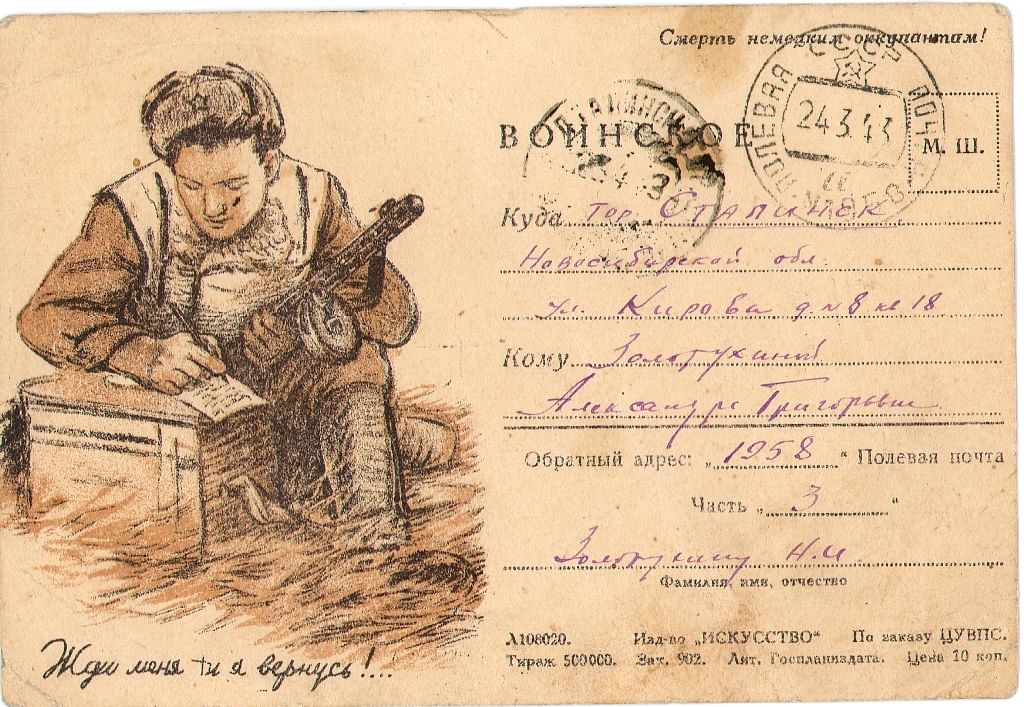 Смерть немецким оккупантам!
ВОИНСКОЕ
ПОЛЕВАЯ СССР ПОЧТА
24.3.43
М. Ш.
Куда гор Сталинск
Новосибирской обл.
ул. Кирова д. № 8 кв 18
Кому Золотухиной
Александре Григорьевне
Обратный адрес: „1958“ Полевая почта
Часть „3“
Золотухину Н.И.
Фамилия, имя, отчество
А106020. Изд-во „ИСКУССТВО“ По заказу ЦУВПС.
Тираж 500000. Зак. 902. Лит. Госпланиздата. Цена 10 коп.
Жди меня и я вернусь!....